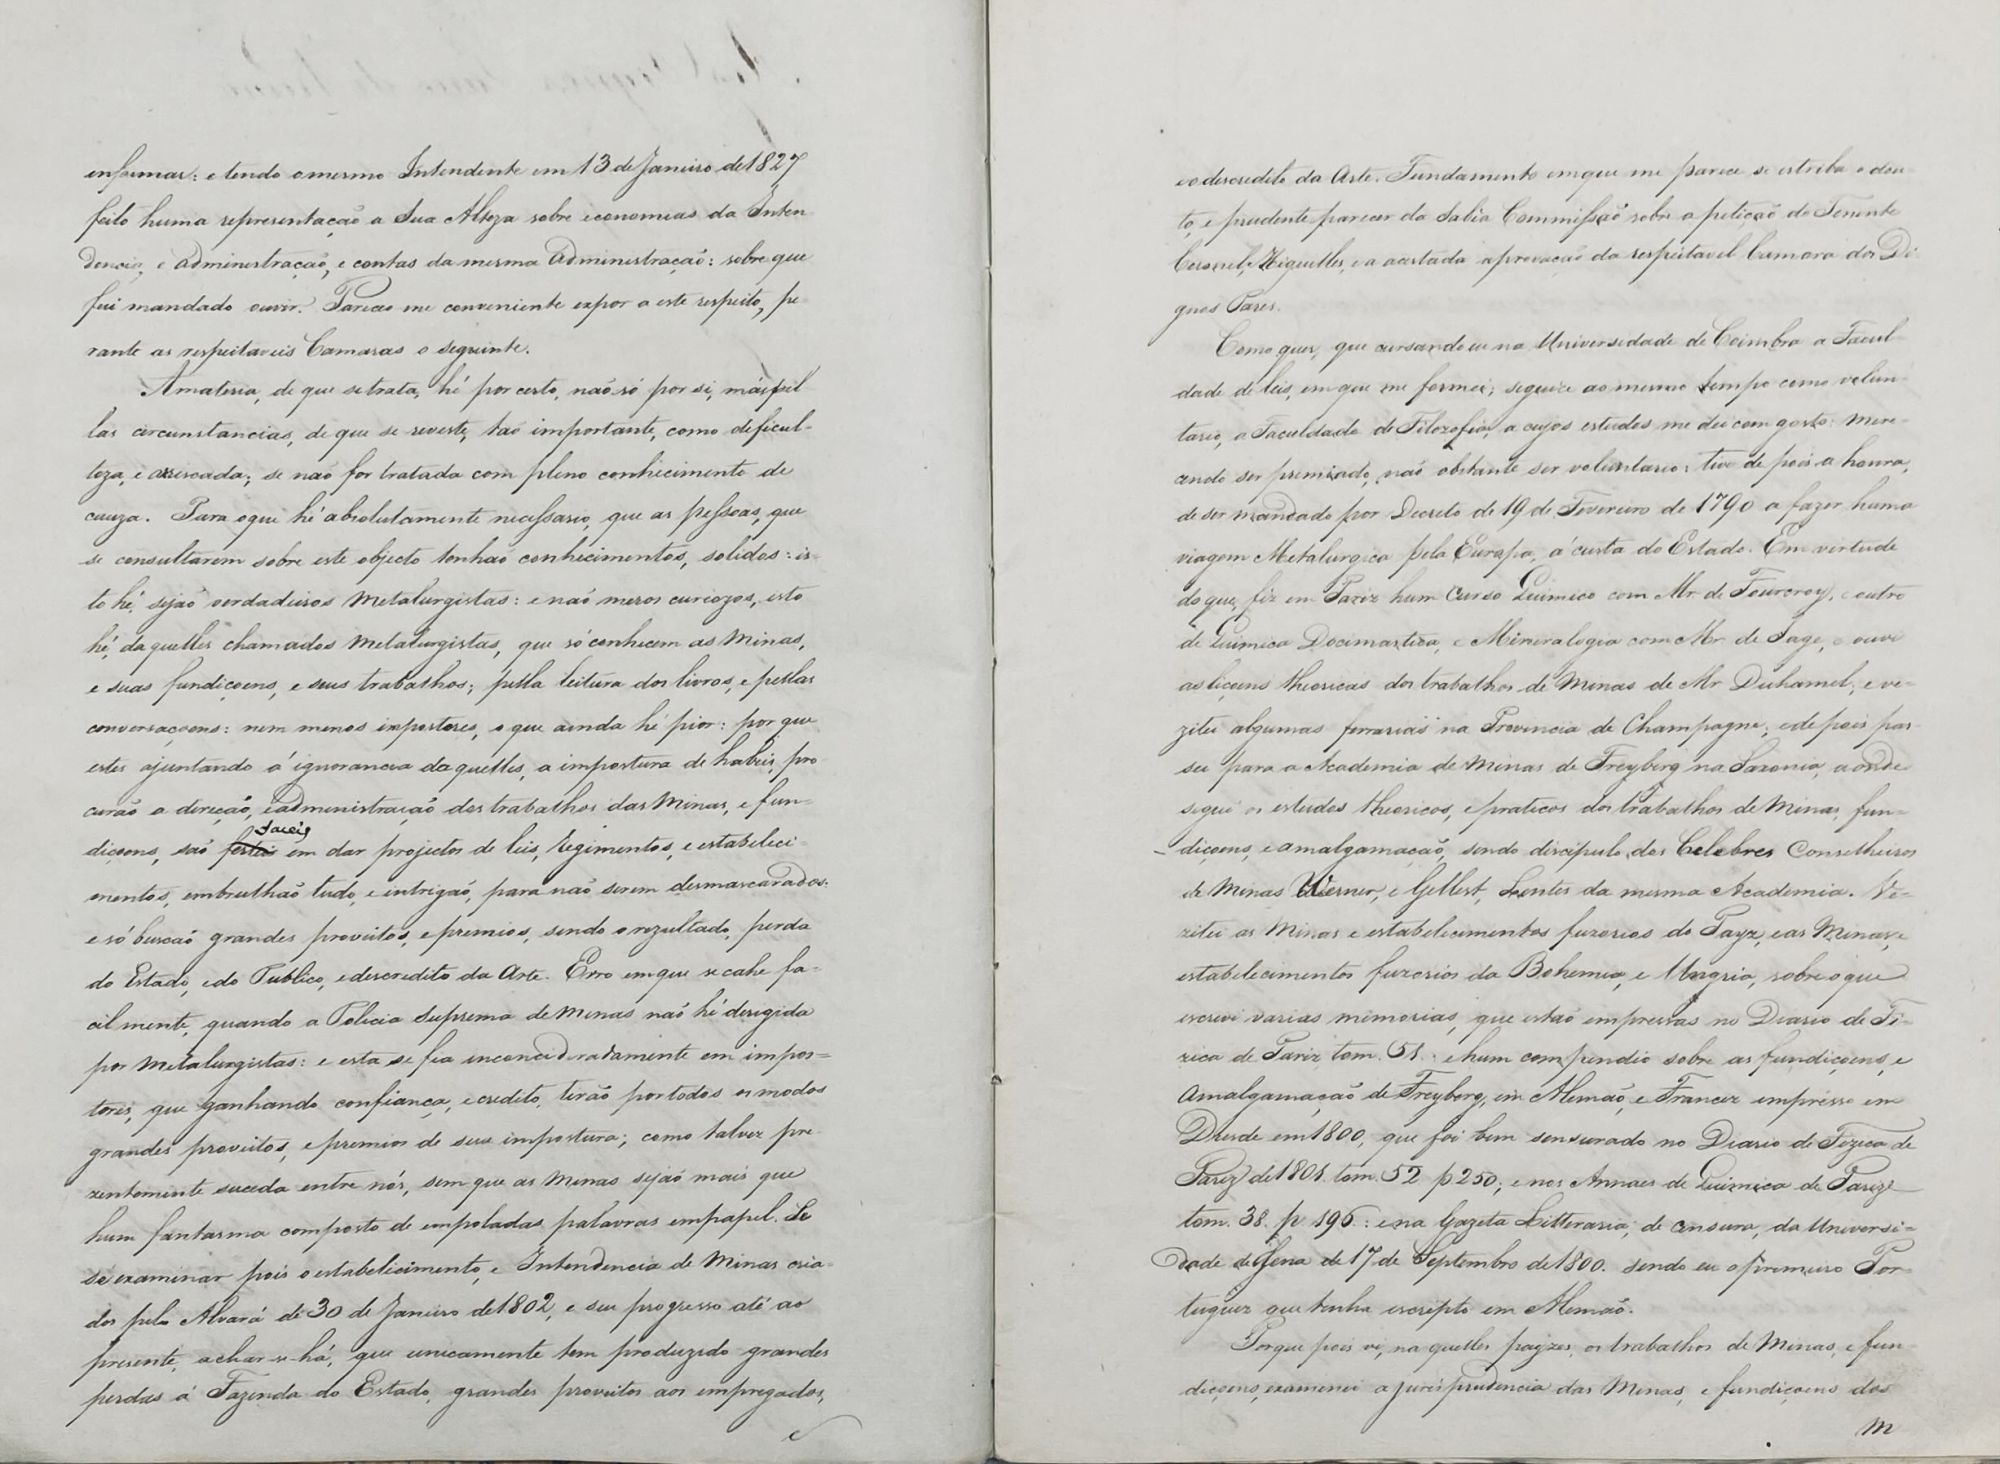 enformar: e tendo o mesmo Intendente em 13 de Janeiro de 1827
feito huma representação a Sua Alteza sobre economias da Inten-
dencia, e administração, e contas da mesma administração: sobre que
fui mandado ouvir. Pareceo me conveniente expor a este respeito, pe-
rante as respeitaveis Camaras o seguinte.
A materia, de que se trata, hé por certo, naõ só por si, más pel-
las circunstancias, de que se reveste, taõ importante, como deficul-
toza, e arriscada; se naõ for tratada com pleno conhecimento de
cauza. Para o que hé absolutamente necessario, que as pessoas, que
se consultarem sobre este objecto tenhaõ conhecimentos, solidos: is-
to hé, sejaõ verdadeiros Metalurgistas: e naõ meros curiozos, isto
hé, daquelles chamados Metalurgistas, que só conhecem as Minas,
e suas fundiçoens, e seus trabalhos; pella leitura dos livros, e pellas
conversaçoens: nem menos impostores, o que ainda hé pior: por que
estes ajuntando á ignorancia daquelles, a impostura de habeis, pro-
curaõ a direçaõ, e administraçaõ dos trabalhos das Minas, e fun-
diçoens, saõ faceis em dar projectos de leis, regimentos, e estabeleci-
mentos, embrulhaõ tudo, e intrigaõ, para naõ serem desmascarados:
e só buscaõ grandes proveitos, e premios, sendo o rezultado, perda
do Estado, e do Publico, e descredito da Arte. Erro em que se cahe fa-
cilmente, quando a Policia Suprema de Minas naõ hé derigida
por Metalurgistas: e esta se fia inconcideradamente em impos-
tores, que ganhando confiança, e credito, terão por todos os modos
grandes proveitos, e premios de sua impostura; como talvez pre-
zentemente suceda entre nós, sem que as Minas sejaõ mais que
hum fantasma composto de empoladas palavras em papel. Se
se examinar pois o estabelecimento, e Intendencia de Minas cria-
dos pelo Alvará de 30 de Janeiro de 1802, e seu progresso até ao
presente, achar-se-há, que unicamente tem produzido grandes
perdas á Fazenda do Estado, grandes proveitos aos empregados,
e
e o descredito da Arte. Fundamento em que me parece se estriba o dou-
to, e prudente parecer da Sabia Commissaõ sobre a petiçaõ do Tenente
Coronel, e a acertada aprovaçaõ da respeitavel Camara dos Di-
gnos Pares.
Como quer, que cursando eu na Universidade de Coimbra a Facul-
dade de leis, em que me formei; seguice ao mesmo tempo como volun-
tario, a Faculdade de Filozofia, a cujos estudos me dei com gosto: mere-
cendo ser premiado, naõ obstante ser voluntario: tive de pois a honra,
de ser mandado por Decreto de 19 de Fevereiro de 1790 a fazer huma
viagem Metalurgica pela Europa, á custa do Estado. Em virtude
do que, fiz em Pariz hum Curso Quimico com Mr. de Fourcroy, e outro
de Quimica Docimastica, e Mineralogia com Mr. de Sage, e ouvi
as liçoens theoricas dos trabalhos de Minas de Mr. Duhamel; e ve-
zitei algumas ferrarias na Provincia de Champagne; e de pois pas-
sei para a Academia de Minas de Freyberg na Saxonia, aonde
segui os estudos theoricos, e praticos dos trabalhos de Minas, fun-
diçoens, e amalgamaçaõ, sendo discipulo dos Celebres Conselheiros
de Minas Werner, e Gellert, Lentes da mesma Academia. Ve-
zitei as Minas e estabelecimentos fuzorios do Payz, e as Minas, e
estabelecimentos fuzorios da Bohemia, e Ungria, sobre o que
escrevi varias memorias, que estaõ impressas no Diario de Fi-
zica de Pariz tom. 51.: e hum compendio sobre as fundiçoens, e
Amalgamaçaõ de Freyberg, em Alemaõ, e Francez impresso em
Dresde em 1800, que foi bem sensurado no Diario de Fizica de
Pariz de 1801. tom. 52 p 250; e nos Annaes de Quimica de Pariz
tom. 38. p 196.: e na Gazeta Litteraria, de censura, da Universi-
dade de Jena de 17 de Septembro de 1800. sendo eu o premeiro Por-
tuguez que tenha escripto em Alemaõ.
Porque pois vi, naquelles payzes, os trabalhos de Minas, e fun-
diçoens, examinei a jurisprudencia das Minas, e fundiçoens dos
M